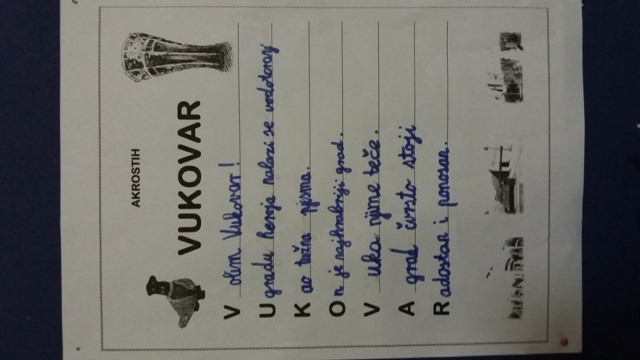 AKROSTIH
VUKOVAR
Volim Vukovar!
U gradu heroja nalazi se vodotoranj
Kao tužna pjesma.
On je najhrabriji grad.
Vuka njime teče.
A grad čvrsto stoji
Radostan i ponosan.